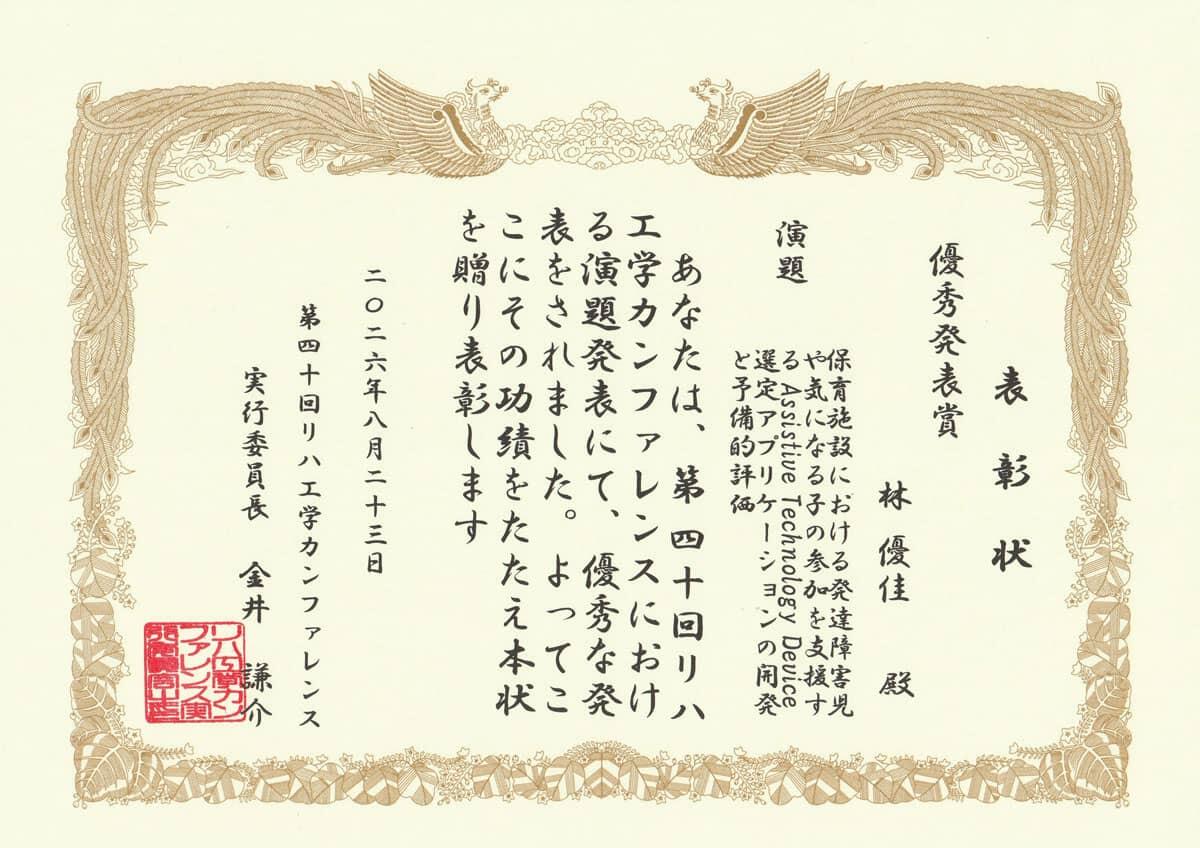 表彰状
優秀発表賞
林 優佳 殿
演題
保育施設における発達障害児
や気になる子の参加を支援す
る Assistive Technology Device
選定アプリケーションの開発
と予備的評価
あなたは、第四十回リハ
工学カンファレンスにおけ
る演題発表にて、優秀な発
表をされました。よってこ
こにその功績をたたえ本状
を贈り表彰します
二〇二六年八月二十三日
第四十回リハ工学カンファレンス
実行委員長 金井 謙介
リハ工学カン
ファレンス実